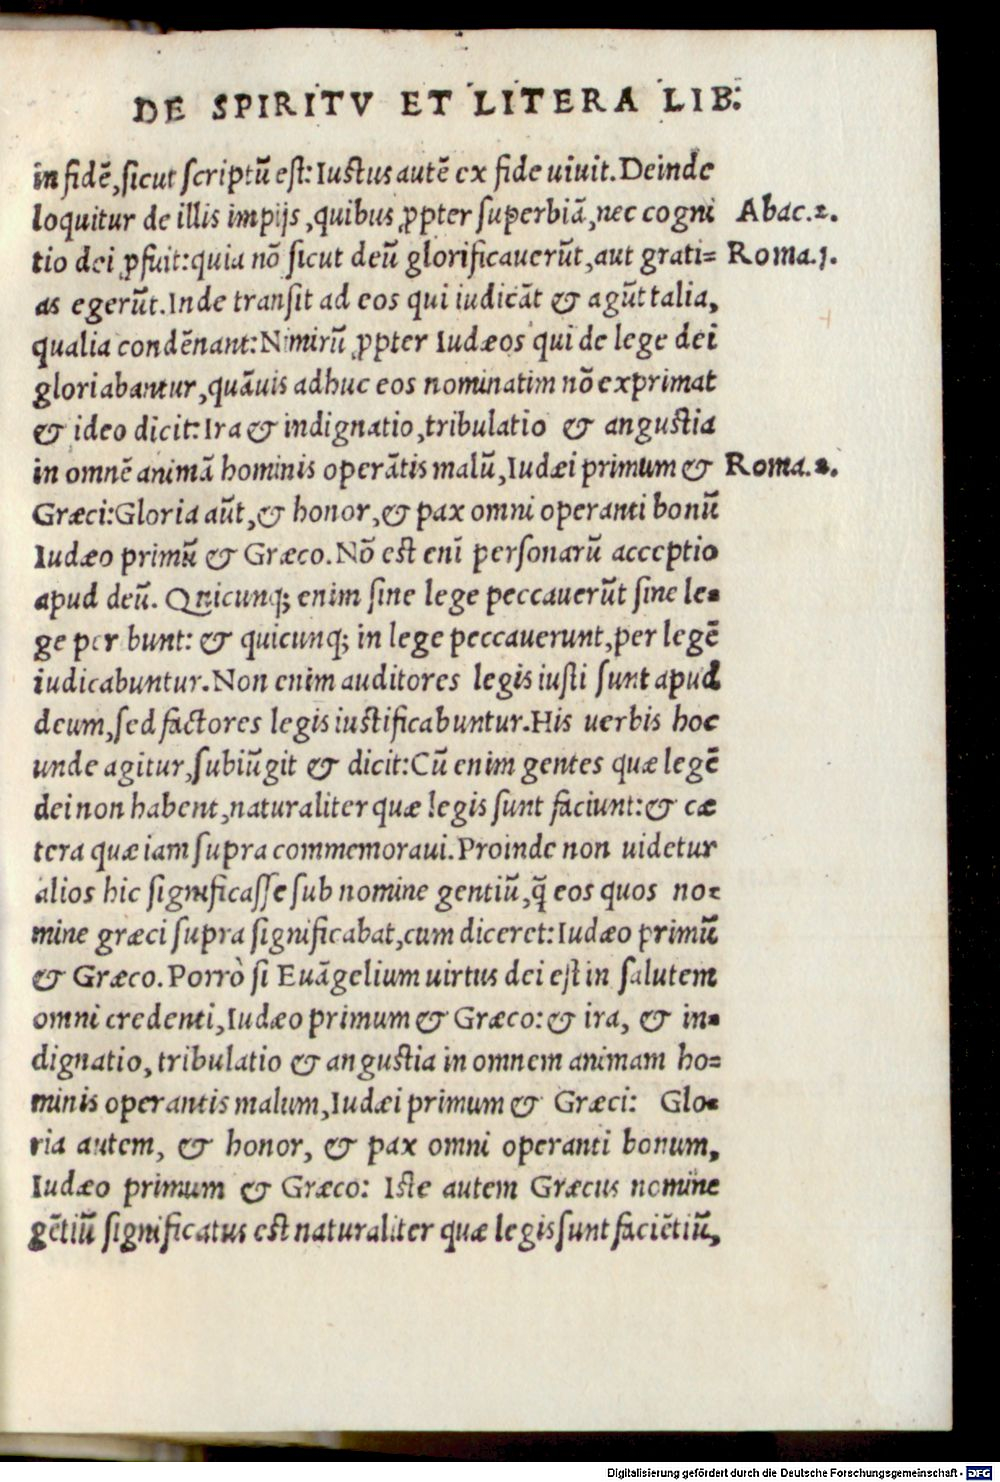 DE SPIRITV ET LITERA LIB:
in fidē, sicut scriptū est: Iustus autē ex fide uiuit. Deinde
loquitur de illis impijs, quibus ꝓpter superbiā, nec cogni
Abac.2.
tio dei ꝓfuit: quia nō sicut deū glorificauerūt, aut grati=
Roma.1.
as egerūt. Inde transit ad eos qui iudicāt & agūt talia,
qualia condēnant: Nimirū ꝓpter Iudæos qui de lege dei
gloriabantur, quāuis adhuc eos nominatim nō exprimat
& ideo dicit: Ira & indignatio, tribulatio & angustia
in omnē animā hominis operātis malū, Iudæi primum &
Roma.2.
Græci: Gloria aūt, & honor, & pax omni operanti bonū
Iudæo primū & Græco. Nō est enī personarū acceptio
apud deū. Quicunq; enim sine lege peccauerūt sine le=
ge per bunt: & quicunq; in lege peccauerunt, per legē
iudicabuntur. Non enim auditores legis iusti sunt apud
deum, sed factores legis iustificabuntur. His uerbis hoc
unde agitur, subiūgit & dicit: Cū enim gentes quæ legē
dei non habent, naturaliter quæ legis sunt faciunt: & cæ
tera quæ iam supra commemoraui. Proinde non uidetur
alios hic significasse sub nomine gentiū, q̄ eos quos no=
mine græci supra significabat, cum diceret: Iudæo primū
& Græco. Porrò si Euāgelium uirtus dei est in salutem
omni credenti, Iudæo primum & Græco: & ira, & in=
dignatio, tribulatio & angustia in omnem animam ho=
minis operantis malum, Iudæi primum & Græci: Glo=
ria autem, & honor, & pax omni operanti bonum,
Iudæo primum & Græco: Iste autem Græcus nomine
gētiū significatus est naturaliter quæ legis sunt faciētiū,
Digitalisierung gefördert durch die Deutsche Forschungsgemeinschaft - DFG